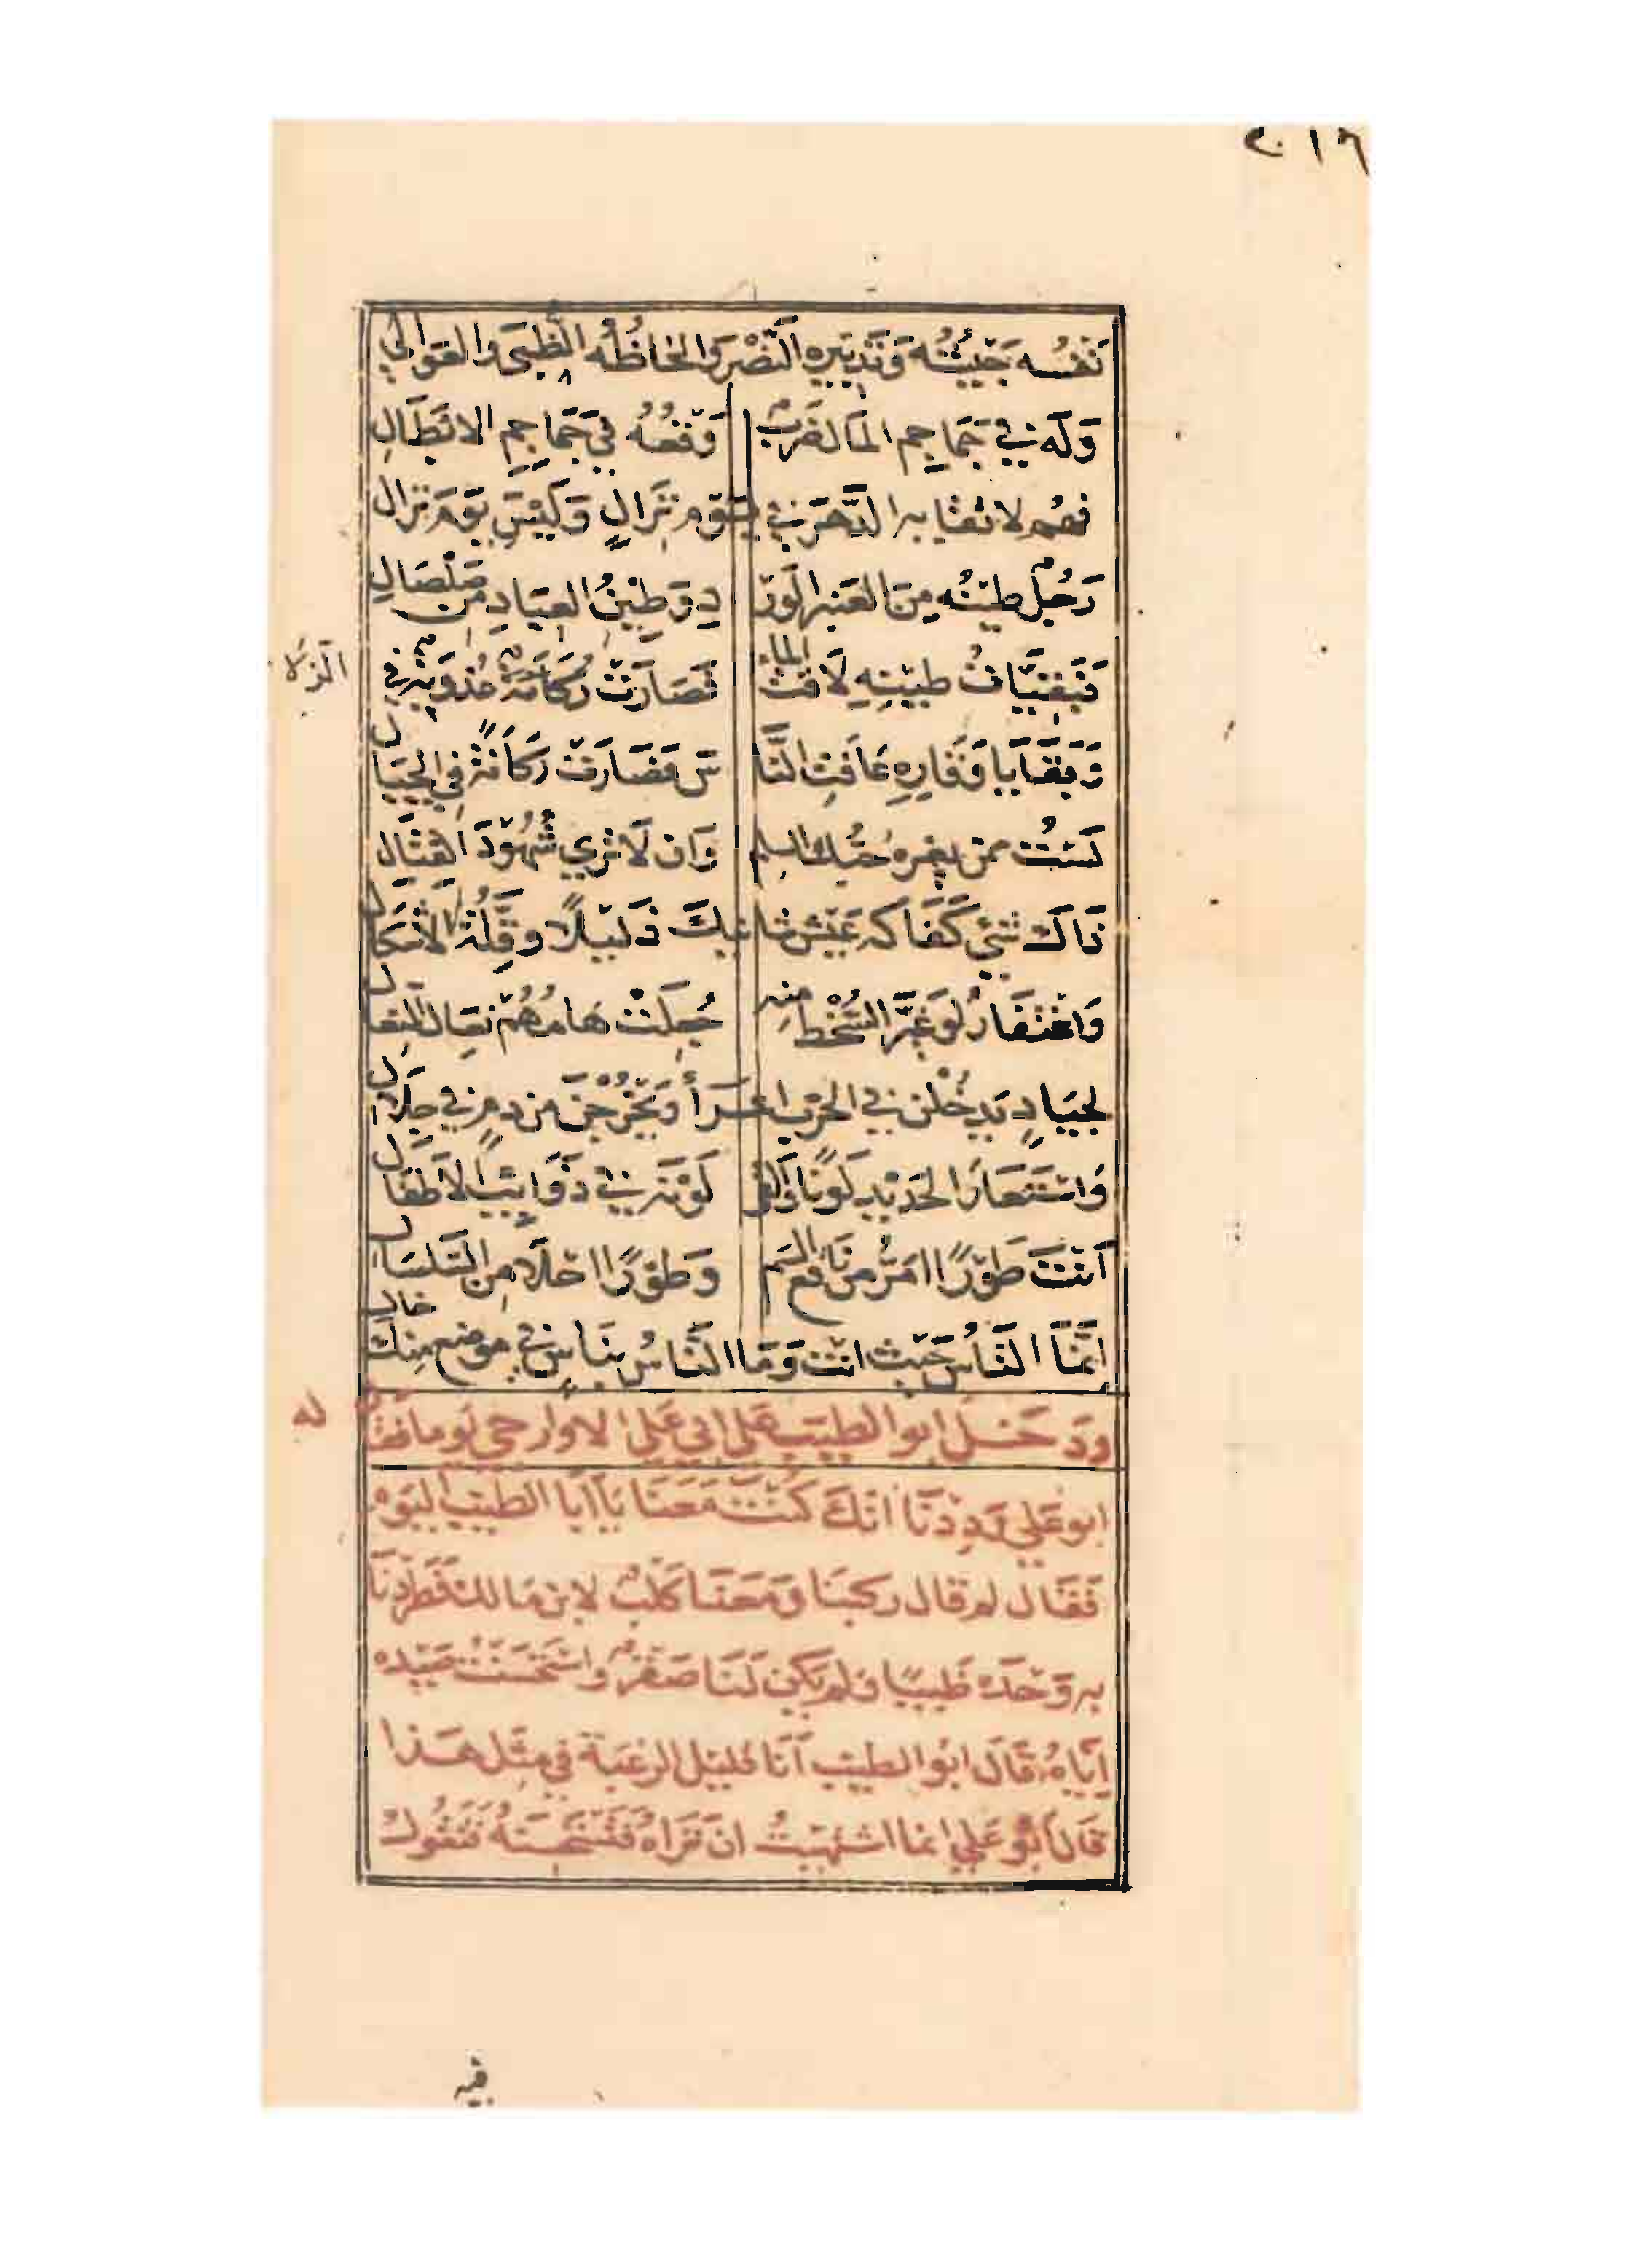 نَفْسُه جَيْشُه وَتَدْبِيره النَّصْرُ وَالحَاظُه الظُّبَى والعَوالي
وَلَه في جَمَاجِم المَال ضَرْبٌ وَقْعُه في جَمَاجِمِ الابْطَالِ
فهم لاتقايه الدَّهرَ في يَوْم نِزَالٍ وَلَيْسَ يَوْمَ نزال
رَجُلٌ طِينُه مِنَ العَنبر الوَرْ دِ وَطينُ العِبَادِ من صَلْصَالِ
فَبَقِيَّاتُ طينِه لَاقت الماء فَصَارَتْ عُذُوبَةً في
الزلا
وَبَقَايَا وَقَارِهِ عَافَتِ النَّا سَ فَصَارَتْ رَكَانَةً في الجِبَال
لَسْتُ ممن يغره حُبُّك السلم وَان لَا تري شُهُودَ القِتَال
ذَاكَ شَئ كَفَاكه عَيْشُ شانيكَ ذَليلًا وقِلَّةُ الأشكال
وَاغْتفَارٌ لَو غَيَّرَ السُّخْط منه جُعِلَتْ هَامُهُمْ نِعَالَ النعال
لجيَادٍ يَدخُلْنَ في الحَرْب اعْرَاءً وَيَخْرُجْنَ من دم في جلال
وَاسْتَعَارَ الحَدِيْد لَونًا وَالقى لَوْنَه في ذَوَائِبِ الأطفَال
أنْتَ طَوْرًا امَرُّ من نَاقع السَّم وَطَوْرًا احْلَا من السَّلسَال
إنَّمَا النَّاسُ حَيْث انْت وَمَا النَّاسُ بنَاسٍ في موضع مِنكَ خال
ودَخَلَ ابو الطيب عَلَى ابي عَلي الاوارجي يوما فقال
له
ابو عَلي وَدِدْنَا انّكَ كُنْتَ مَعَنَا يَا أبَا الطيب اليَوم
فَقَال لم قال ركبنَا وَمَعَنَا كَلْبٌ لابن مَالك فَطَرَدْنَا
به وَحْدَه ظَبيًا ولم يَكن لَنَا صَقْرٌ واسْتَحْسَنْتُ صَيْده
إيَّاهُ قَالَ ابُو الطيب أنَا قليل الرغبَة في مِثْل هَذا
قَالَ أبُو عَلي انما اشْتَهَيْتُ ان تَرَاهُ فَتَسْتَحْسِنَهُ فَتَقُول
فيه